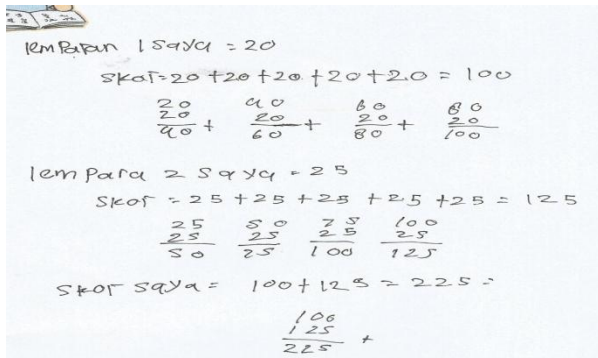 lemparan 1 saya = 20
skor = 20 + 20 + 20 + 20 + 20 = 100
20 40 60 80
20 + 20 + 20 + 20
40 60 80 100
lempara 2 saya = 25
skor = 25 + 25 + 25 + 25 + 25 = 125
25 50 75 100
25 25 25 25
50 25 100 125
skor saya = 100 + 125 = 225 =
100
125 +
225